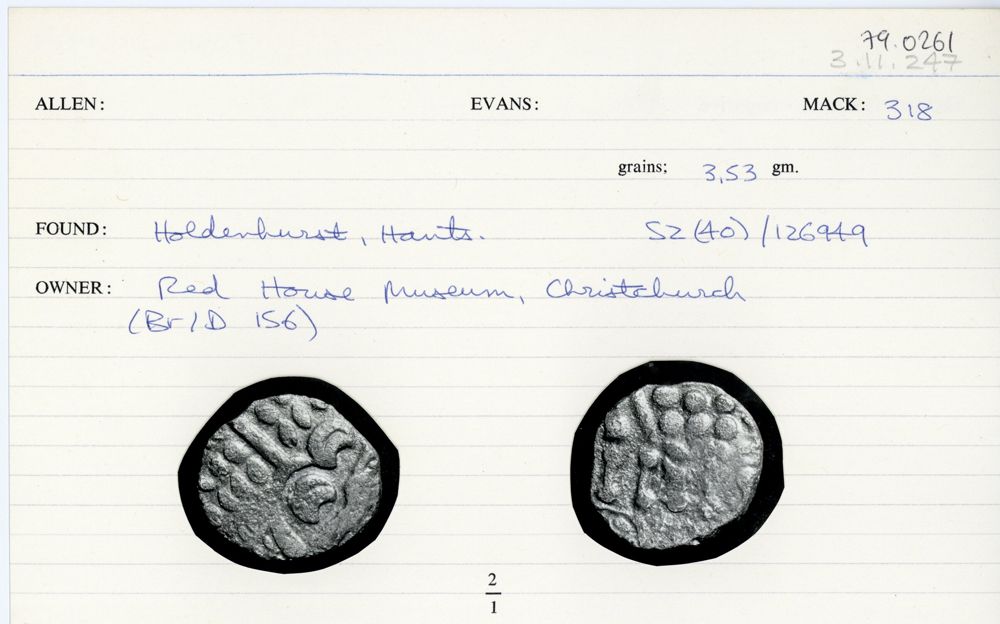 79.0261
3.11.247
ALLEN: EVANS: MACK: 318
grains: 3,53 gm.
FOUND: Holdenhurst, Hants. SZ(40)/126949
OWNER: Red House Museum, Christchurch
(Br/D 156)
2
1